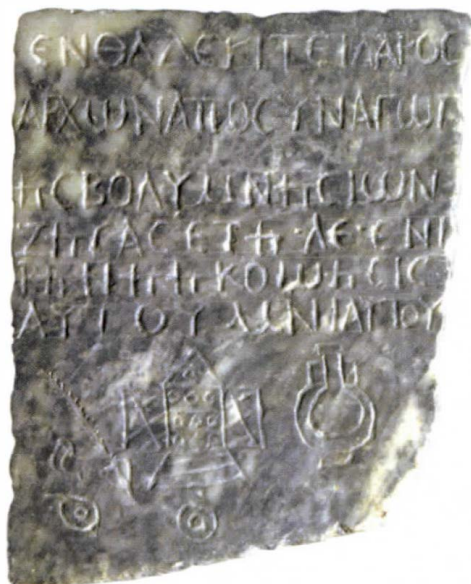 ΕΝΘΑΔΕΚΙΤΕΙΛΑΡΟϹ
ΑΡΧΩΝΑΠΟϹΥΝΑΓΩΓ
ΗϹΒΟΛΥΜΝΗϹΙΩΝ
ΖΗϹΑϹΕΤΗ·ΛΕ·ΕΝΙ
ΡΗΝΗΗΚΟΙΜΗϹΙϹ
ΑΥΤΟΥ